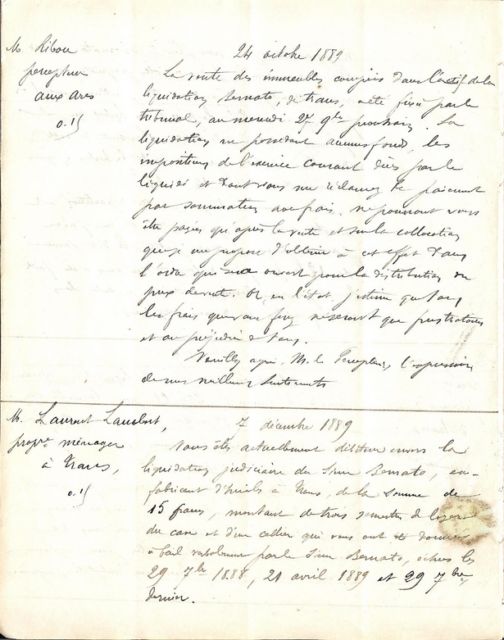 M. Ribou
percepteur
aux Arcs
0.15
24 octobre 1889
La vente des immeubles compris dans l'actif de la
liquidation Bernato, de Trans, a été fixé par le
tribunal, au mercredi 27 9bre prochain. La
liquidation ne possédant aucun fond, les
impositions de l'exercice courant dûes par le
liquidé et dont vous me réclamez le paiement
par sommation avec frais, ne pourront vous
être payées qu'après la vente et sur la collocation
que je me propose d'obtenir à cet effet dans
l'ordre qui sera ouvert pour la distribution du
prix de vente. Or, en l'état j'estime que tous
les frais que vous ferez ne seront que frustratoires
et au préjudice de tous.
Veuillez agréer, M. le Percepteur, l'expression
de mes meilleurs sentiments
M. Laurent Lambert,
propre ménager
à Trans,
0.15
7 décembre 1889
Vous êtes actuellement débiteur envers la
liquidation judiciaire du Sieur Bernato, ex-
fabricant à Trans, de la somme de
15 francs, montant de trois semestres de loyer
du cave et d'un cellier qui vous ont été donnés
à bail par le Sieur Bernato, échus les
29 7bre 1888, 21 avril 1889 et 29 7bre
dernier.